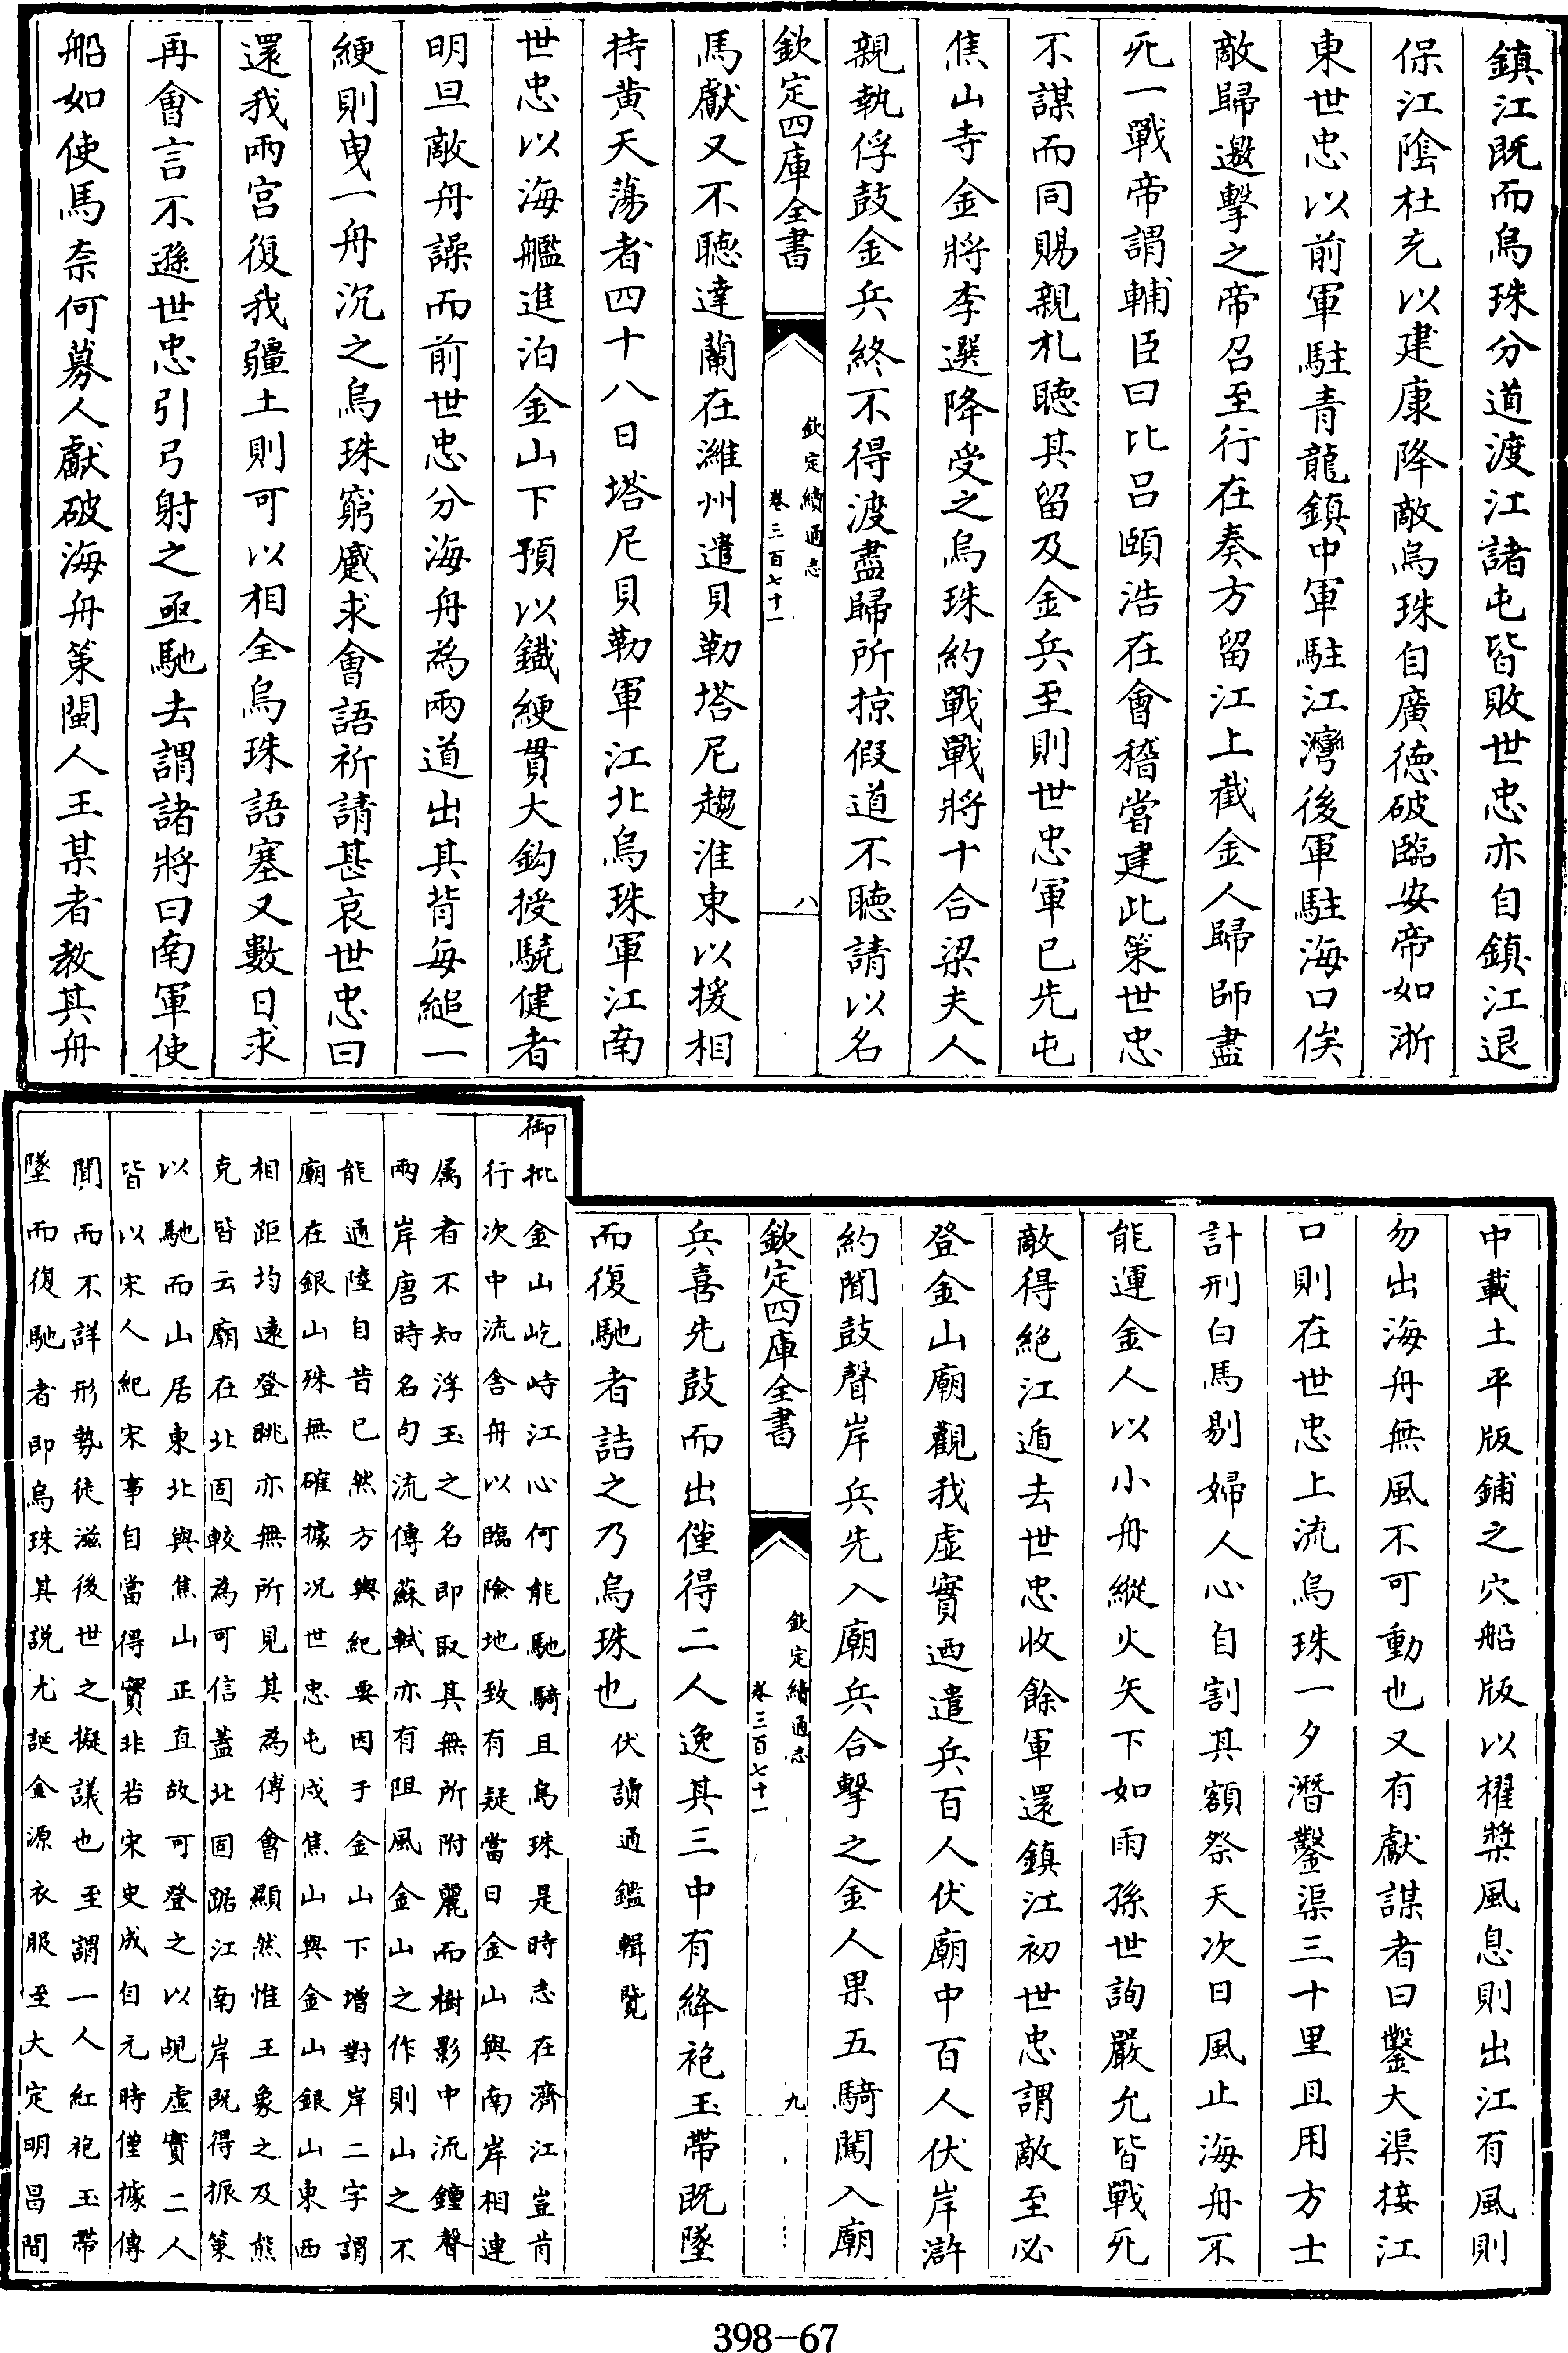 鎮江既而烏珠分道渡江諸屯皆敗世忠亦自鎮江退
保江陰杜充以建康降敵烏珠自廣德破臨安帝如浙
東世忠以前軍駐青龍鎮中軍駐江灣後軍駐海口俟
敵歸邀擊之帝召至行在奏方留江上截金人歸師盡
死一戰帝謂輔臣曰比吕頤浩在會稽嘗建此策世忠
不謀而同賜親札聽其留及金兵至則世忠軍已先屯
焦山寺金將李選降受之烏珠約戰戰將十合梁夫人
親執俘鼓金兵終不得渡盡歸所掠假道不聽請以名
欽定四庫全書
欽定續通志
卷三百七十一
八
馬獻又不聽達蘭在濰州遣貝勒塔尼趨淮東以援相
持黄天蕩者四十八日塔尼貝勒軍江北烏珠軍江南
世忠以海艦進泊金山下預以鐵綆貫大鈎授驍健者
明旦敵舟譟而前世忠分海舟為兩道出其背每縋一
綆則曳一舟沉之烏珠窮蹙求會語祈請甚哀世忠曰
還我兩宮復我疆土則可以相全烏珠語塞又數日求
再會言不遜世忠引弓射之亟馳去謂諸將曰南軍使
船如使馬奈何募人獻破海舟策閩人王某者教其舟
中載土平版鋪之穴船版以櫂槳風息則出江有風則
勿出海舟無風不可動也又有獻謀者曰鑿大渠接江
口則在世忠上流烏珠一夕潛鑿渠三十里且用方士
計刑白馬剔婦人心自割其額祭天次日風止海舟不
能運金人以小舟縱火矢下如雨孫世詢嚴允皆戰死
敵得絶江遁去世忠收餘軍還鎮江初世忠謂敵至必
登金山廟觀我虛實迺遣兵百人伏廟中百人伏岸滸
約聞鼓聲岸兵先入廟兵合擊之金人果五騎闖入廟
欽定四庫全書
欽定續通志
卷三百七十一
九
兵喜先鼓而出僅得二人逸其三中有絳袍玉帶既墜
而復馳者詰之乃烏珠也伏讀通鑑輯覽
御批金山屹峙江心何能馳騎且烏珠是時志在濟江豈肯
行次中流舍舟以臨險地致有疑當日金山與南岸相連
属者不知浮玉之名即取其無所附麗而樹影中流鐘聲
兩岸唐時名句流傳蘇軾亦有阻風金山之作則山之不
能通陸自昔已然方輿紀要因于金山下增對岸二字謂
廟在銀山殊無確據况世忠屯戍焦山與金山銀山東西
相距均遠登眺亦無所見其為傅會顯然惟王象之及熊
克皆云廟在北固較為可信蓋北固踞江南岸既得振策
以馳而山居東北與焦山正直故可登之以覘虛實二人
皆以宋人紀宋事自當得實非若宋史成自元時僅據傳
聞而不詳形勢徒滋後世之擬議也至謂一人紅袍玉帶
墜而復馳者即烏珠其説尤誕金源衣服至大定明昌間
398-67